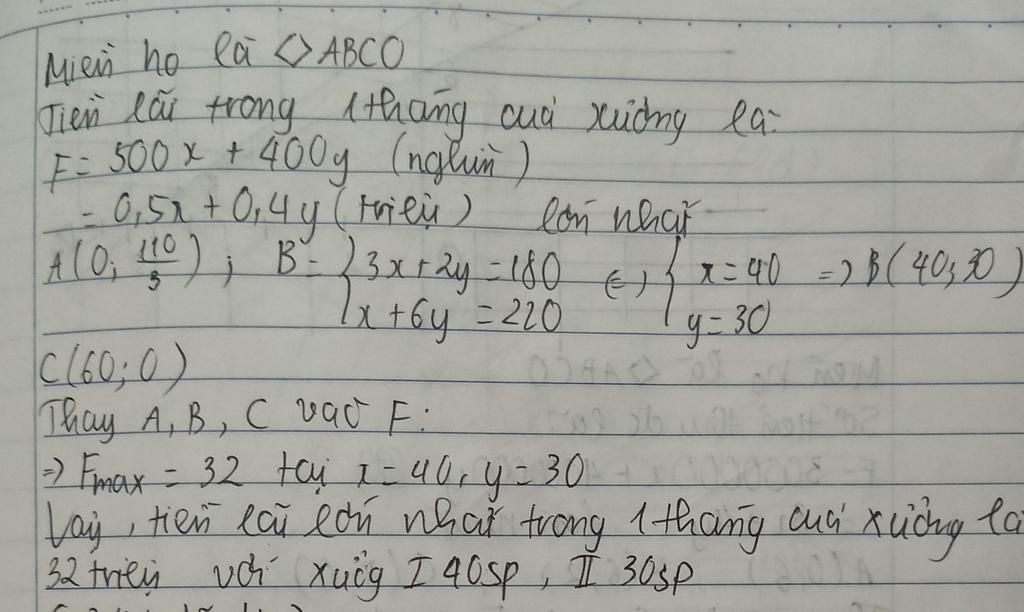 Miền no là ◇ABCO
Tiền lãi trong 1 tháng của xưởng là:
F = 500x + 400y (nghìn)
= 0,5x + 0,4y (triệu) lớn nhất
A(0; 110/3); B = { 3x + 2y = 180 ⇔ { x = 40 => B(40; 30)
x + 6y = 220 y = 30
C(60; 0)
Thay A, B, C vào F:
=> Fmax = 32 tại x = 40, y = 30
Vậy, tiền lãi lớn nhất trong 1 tháng của xưởng là
32 triệu với xưởg I 40sp, II 30sp